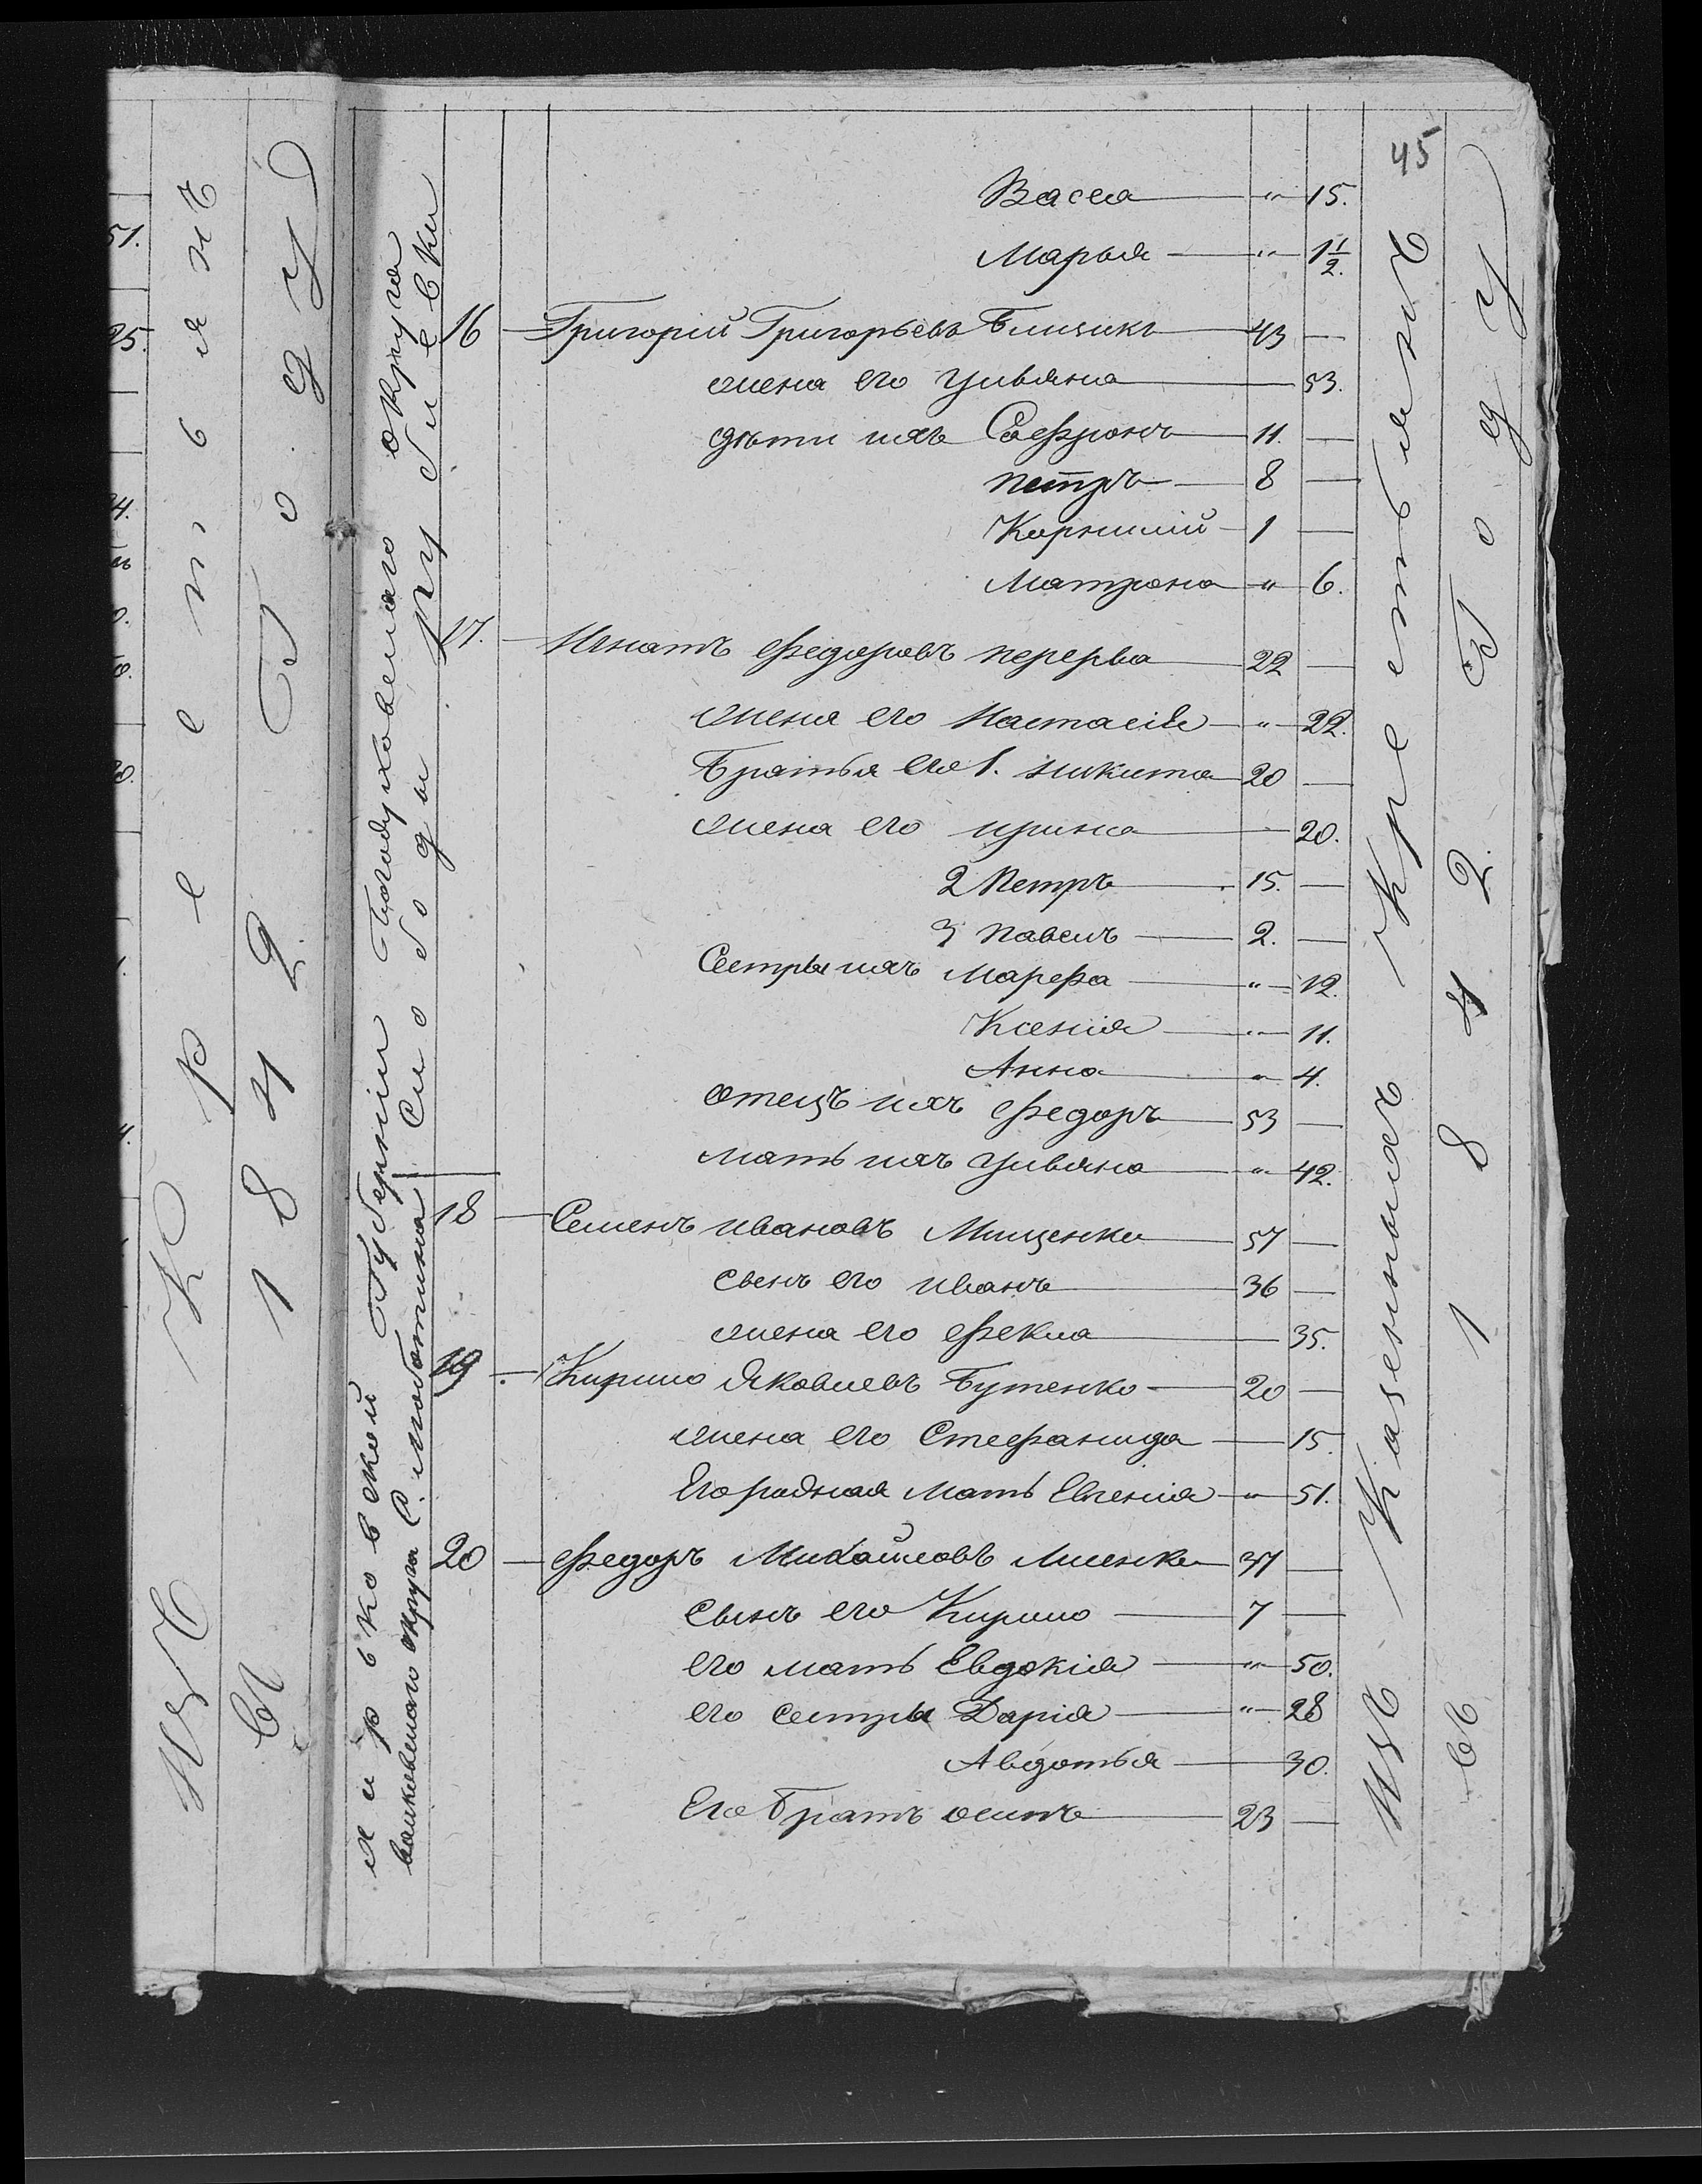 45
Васса — " — 15.
Марья — " — 1 1/2.
16 — Григорій Григорьевъ — 43 —
жена его Ульяна — 53.
дѣти ихъ Софронъ — 11. —
Петръ — 8 —
Корнилій — 1 —
Матрона — " — 6.
17. — Игнатъ Федоровъ перерва — 22 —
жена его Настасія — " — 22.
Братья его 1. никита — 20 —
жена его ирина — 20.
2 Петръ — 15. —
3 павелъ — 2. —
Сестры ихъ Марфа — " — 12.
Ксенія — " — 11.
Анна — " — 4.
отецъ ихъ Федоръ — 53 —
мать ихъ Ульяна — " — 42.
18 — Семенъ ивановъ Мищенко — 57 —
сынъ его иванъ — 36 —
жена его Фекла — 35.
19. — Кирило Яковлевъ Бутенко — 20 —
жена его Стефанида — 15.
Его родная мать Евгенія — " — 51.
20 — Федоръ Михайловъ — 37 —
сынъ его Кирило — 7 —
его мать Евдокія — " — 50.
его сестры Дарія — " — 28
Авдотья — 30.
Его Братъ осипъ — 23 —
Харьковской Губерніи Богодуховскаго округа
валковскаго округа С. Люботина
Слободы Рублевки
Изъ Казенныхъ Крестьянъ
въ 1842. Году
Изъ Крестьянъ
въ 1842. Году
51.
25.